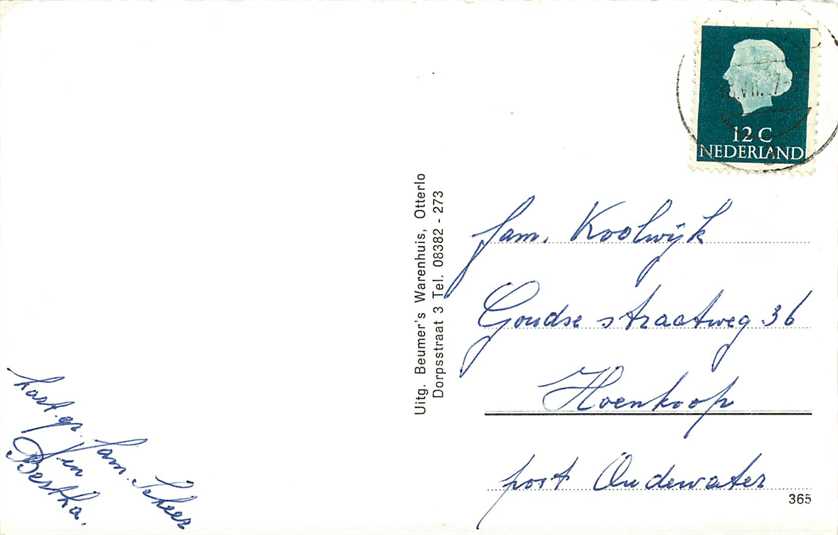 hart. gr. fam. Scheer
en
Bertha.
Uitg. Beumer's Warenhuis, Otterlo
Dorpsstraat 3 Tel. 08382 - 273
12 C
NEDERLAND
fam. Koolwijk
Goudse straatweg 36
Hoenkoop
post Oudewater
365